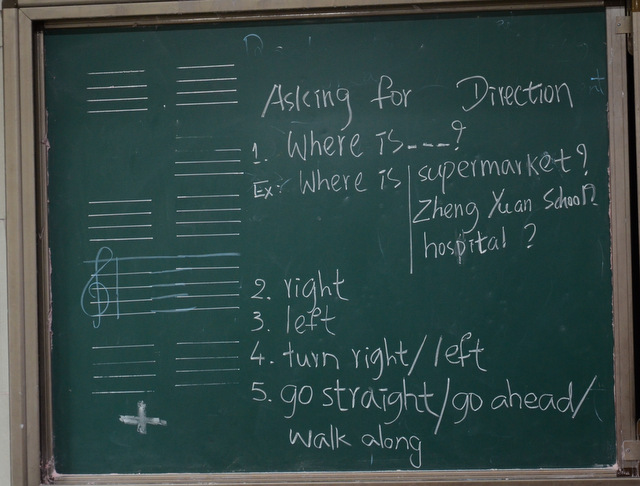 Asking for Direction
1. Where is ---?
Ex: Where is supermarket?
Zheng Xuan School?
hospital?
2. right
3. left
4. turn right/left
5. go straight/go ahead/
walk along